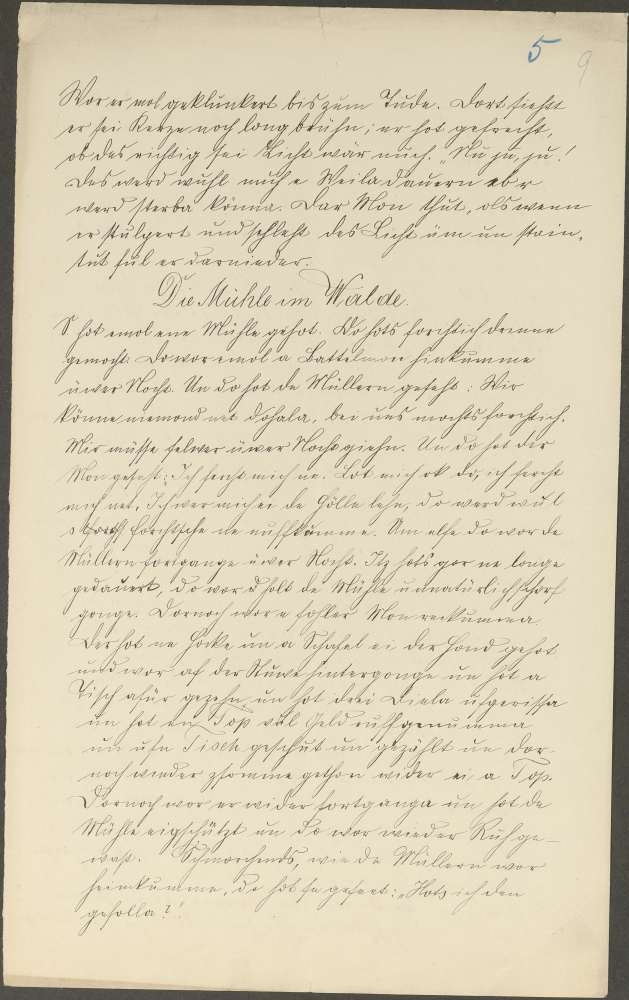 5 9
Wor er mol geklunkert bis zum Tude. Dort sieht
er sei Kerze noch long brühn; er hot gefrecht,
ob das richtig sei Licht wär nuch. „Nu ju, ju!
Das werd wuhl nuch e Weila dauern ebr
werd sterba könna. Dar Mon thut, ols wenn
er stulpert und schleht des Licht üm un stein-
tut ful er darnieder.
Die Mühle im Walde.
S hot emol ene Mühle gehot. Do hots forchtich drenne
gemocht. Do wor emol a Battelmon hinkumme
üwer Nocht. Un do hot de Müllern geseht: Wir
könne niemond net dohala, bei uns mochts forchtich.
Mir müsse selwer üwer Nocht giehn. Un do hot der
Mon geseht: Ich fercht mich ne. Lot mich ok do, ich fercht
mich net, Ich wer mich ei de Hölle lehn, do werd wul
s forchtsche ne nuffkumme. Um elfe do wor de
Müllern fortgange üwer Nocht. Itz hots gor ne longe
gedauert, do wor dholt de Mühle unnatürlich schorf
gonge. Dornoch wor e fohler Mon reikumma.
Der hot ne Hocke un a Schafel ei der Hond gehot
und wor af der Stuwe hintergonge un hot a
Tisch afür gezehn un hot drei Diela ufgerissa
un hot en Top vul Geld ruffgenumma
un ufn Tisch geschut un gezählt un dor-
noch wieder zsomme gethon wider ei a Top.
Dornoch wor er wider fortganga un hot de
Mühle eigschützt un do wor wieder Ruh ge-
wast. Schmorchends, wie de Müllern wor
heimkumme, do hot se gesoat: „Hots ich den
gefolla?“